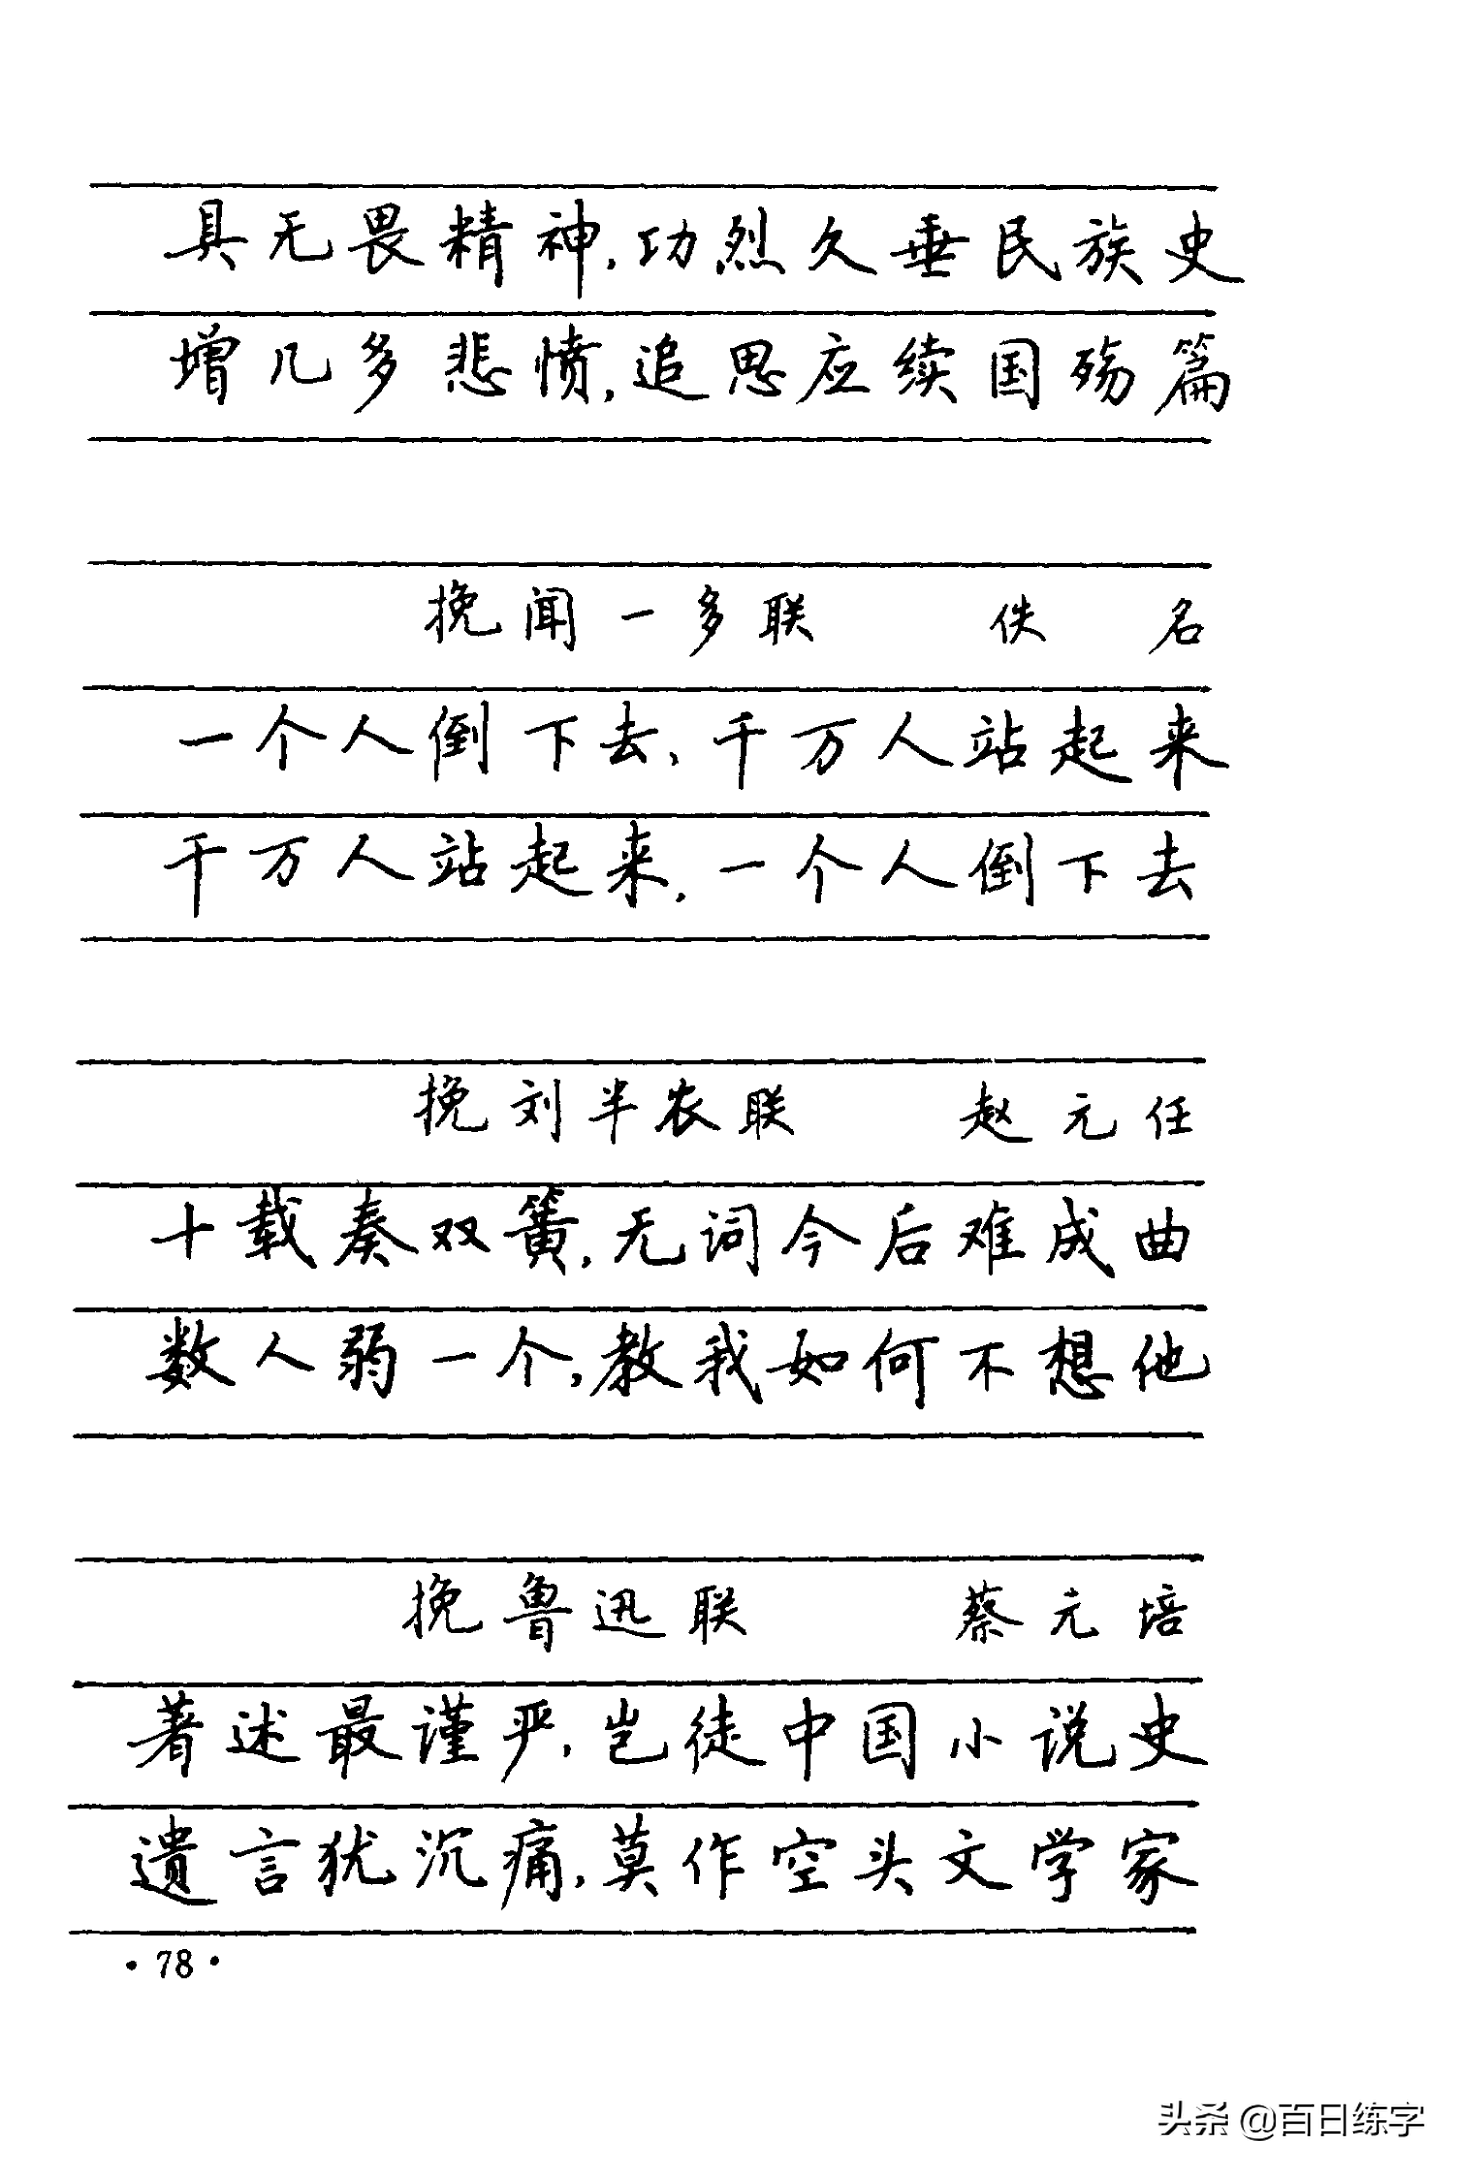 具无畏精神,功烈久垂民族史
增几多悲愤,追思应续国殇篇
挽闻一多联 佚名
一个人倒下去,千万人站起来
千万人站起来,一个人倒下去
挽刘半农联 赵元任
十载奏双簧,无词今后难成曲
数人弱一个,教我如何不想他
挽鲁迅联 蔡元培
著述最谨严,岂徒中国小说史
遗言犹沉痛,莫作空头文学家
·78·
头条 @百日练字